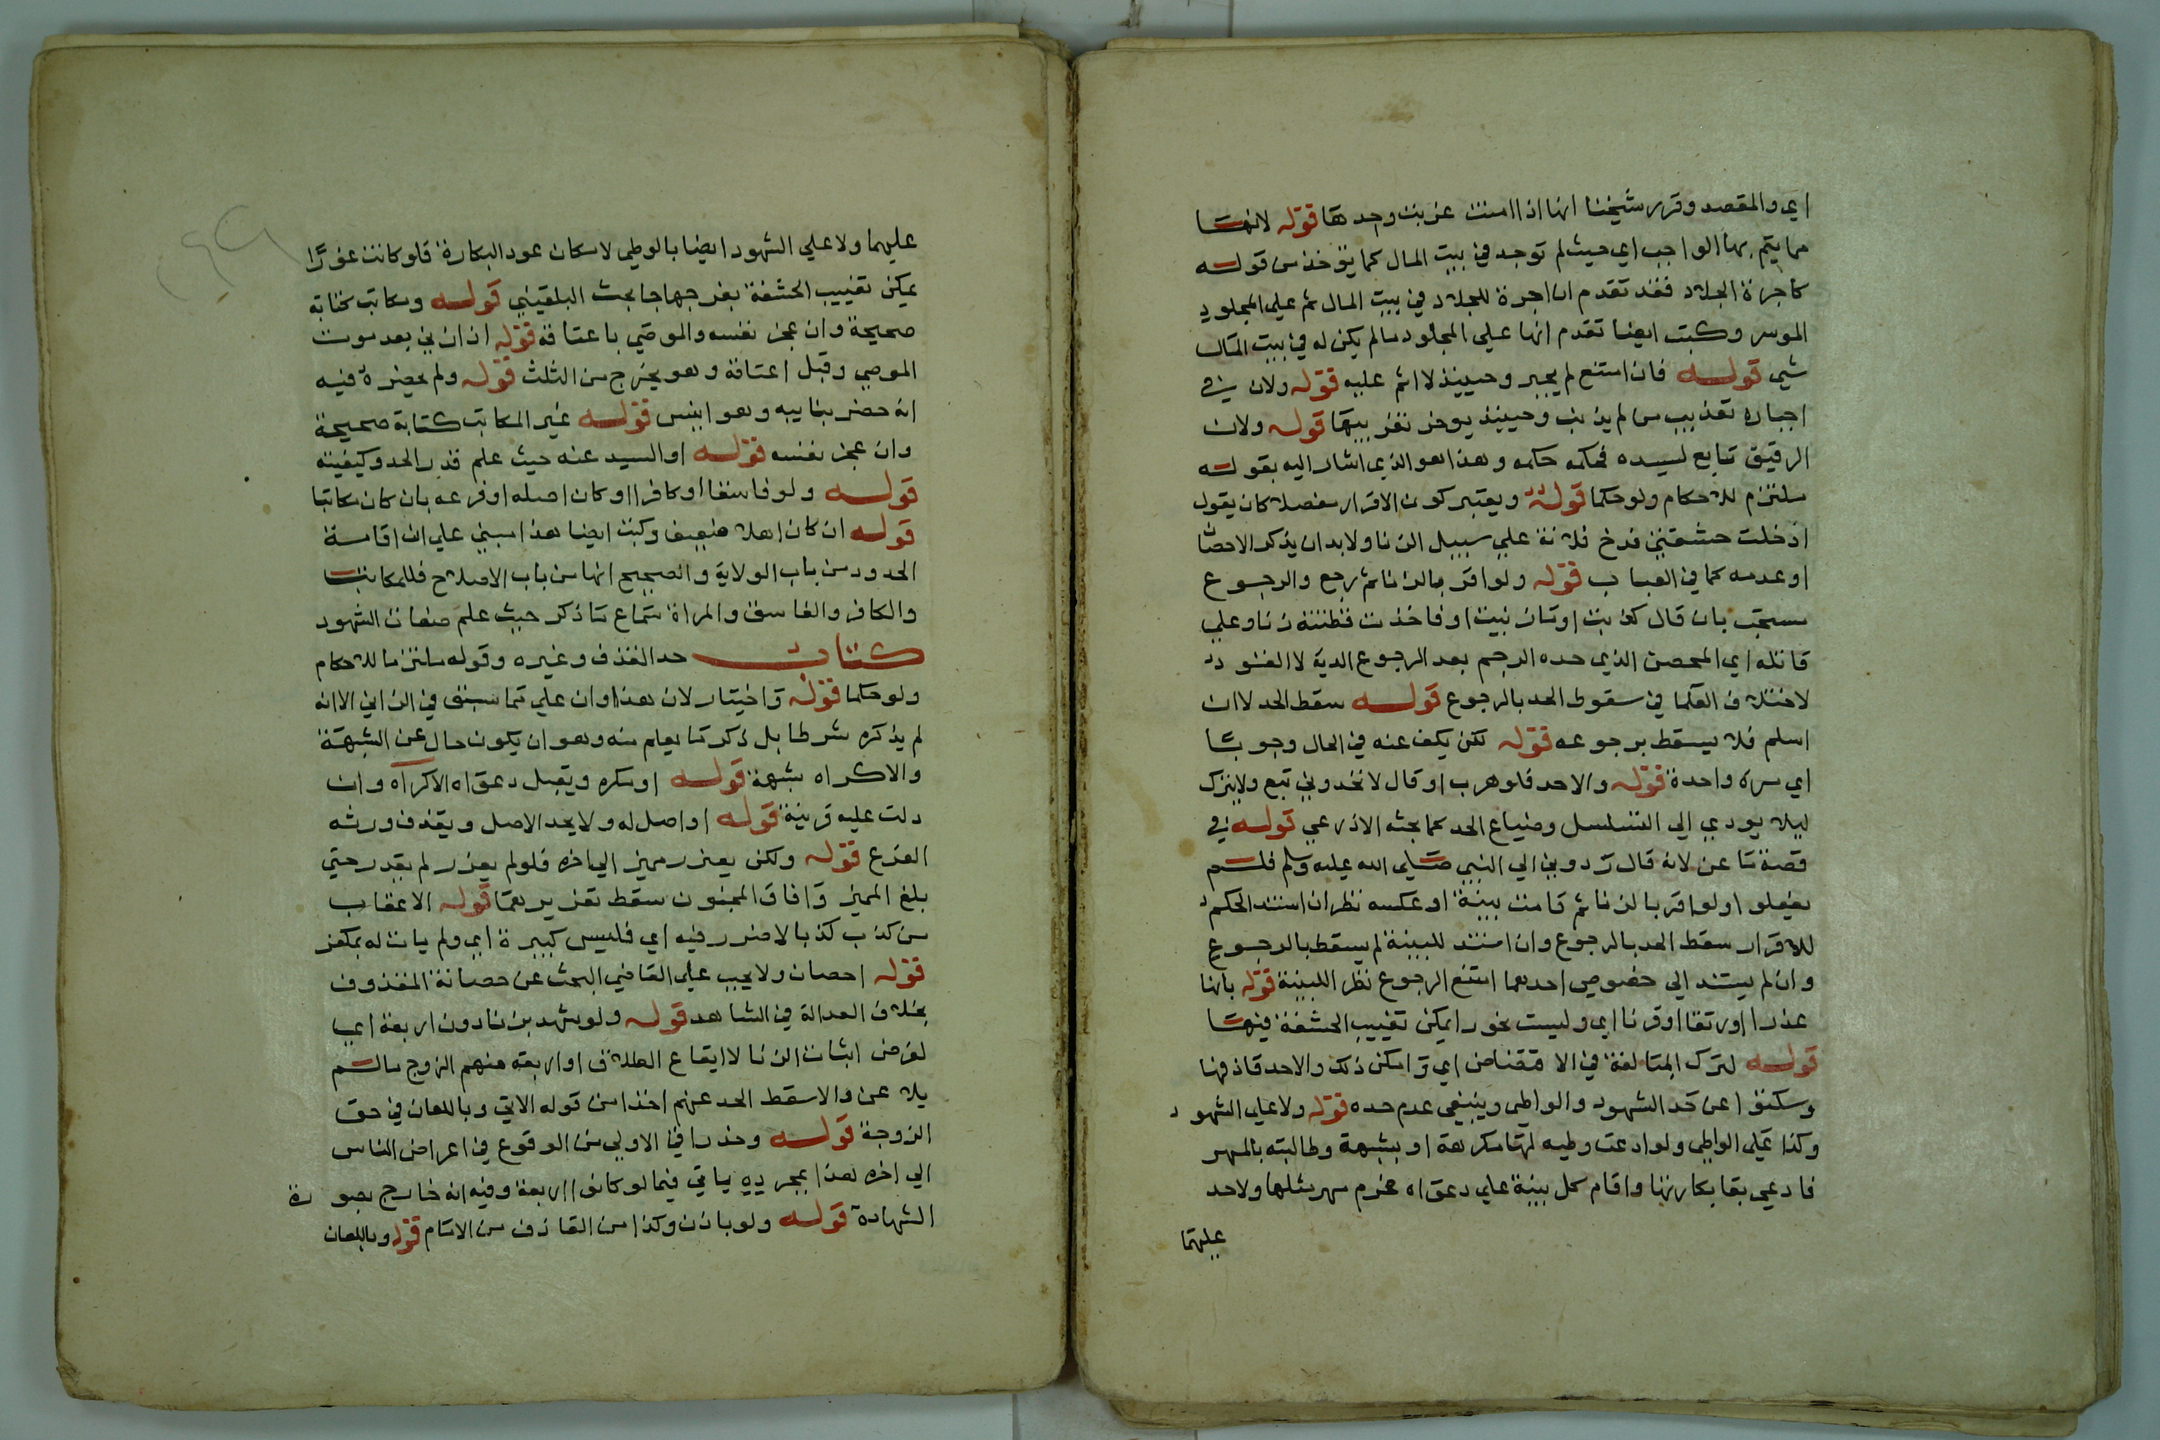 اي والمقصد وقرر شيخنا انها اذا امنت غربت وحدها قوله لانها
مما يتم بها الواجب اي حيث لم توجد في بيت المال كما يؤخذ من قوله
كاجرة الجلاد فقد تقدم ان اجرة للجلاد في بيت المال ثم علي المجلود
الموسر وكتب ايضا تقدم انها علي المجلود مالم يكن له في بيت المال
شي قوله فان امتنع لم يجبر وحينيذ لا اثم عليه قوله ولان في
اجباره تعذيب من لم يذنب وحينيذ يوخر تغريبها قوله ولان
الرقيق تابع لسيده فحكمه حكمه وهذا هو الذي اشار اليه بقوله
ملتزم للاحكام ولو حكما قوله ويعتبر كون الاقرار مفصلا كان يقول
ادخلت حشفتي فرخ فلانة علي سبيل الزنا ولا بد ان يذكر الاحصان
او عدمه كما في العباب قوله ولو اقر بالزنا ثم رجع والرجوع
مستحب بان قال كذبت او ما زنيت او فاخذت فظننته زنا وعلي
قاتله اي المحصن الذي حده الرجم بعد الرجوع الدية لا القود
لاختلاف العلما في سقوط الحد بالرجوع قوله سقط الحد لا ان
اسلم فلا يسقط برجوعه قوله لكن يكف عنه في الحال وجوبا
اي مرة واحدة قوله والا حد فلو هرب او قال لا تحدوني تبع ولا يترك
ليلا يودي الي التسلسل وضياع الحد كما بحثه الاذرعي قوله في
قصة ماعز لانه قال ردوني الي النبي صلي الله عليه وسلم فلم
يفعلوا ولو اقر بالزنا ثم قامت بينة او عكسه نظر ان استند الحكم
للاقرار سقط الحد بالرجوع وان استند للبينة لم يسقط بالرجوع
وان لم يستند الي خصوص احدهما امتنع الرجوع نظر اللبينة قوله بانها
عذرا او رتقا او قرنا اي وليست غورا يمكن تغييب الحشفة فيها
قوله لترك المبالغة في الاقتضاض اي وامكن ذلك والا حد قاذفها
وسكتوا عن حد الشهود والواطي وينبغي عدم حده قوله ولا علي الشهود
وكذا علي الواطي ولو ادعت وطيه لها مكرهة او بشبهة وطالبته بالمهر
فادعي بقا بكارتها واقام كل بينة علي دعواه غرم مهر مثلها ولا حد
عليهما
عليهما ولا علي الشهود ايضا بالوطي لامكان عود البكارة فلو كانت غورا
يمكن تغييب الحشفة بفرجها جا بحث البلقيني قوله ومكاتب كتابة
صحيحة وان عجز نفسه والموصي باعتاقه قوله اذ ان ني بعد موت
الموصي وقبل اعتاقه وهو يخرج من الثلث قوله ولم يحضره فيه
انه حضر بنايبه وهو انيس قوله غير المكاتب كتابة صحيحة
وان عجز نفسه قوله او السيد عنه حيث علم قدر الحد وكيفيته
قوله ولو فاسقا او كافرا او كان اصله او فرعه بان كان مكاتبا
قوله ان كان اهلا ضعيف وكتب ايضا هذا مبني علي ان اقامة
الحدود من باب الولاية والصحيح انها من باب الاصلاح فللمكاتب
والكافر والفاسق والمراة سماع ما ذكر حيث علم صفات الشهود
كتاب حد القذف وغيره وقوله ملتزما للاحكام
ولو حكما قوله واختيار لان هذا وان علي مما سبق في الزاني الا انه
لم يذكره شرطا بل ذكر ما يعلم منه وهو ان يكون خال عن الشبهة
والاكراه شبهة قوله او مكره ويقبل دعواه الاكراه وان
دلت عليه قرينة قوله او اصل له ولا يحد الاصل وبقذف ورثه
الفرع قوله ولكن يعزر مميز الي اخره فلو لم يعزر لم يقدر حتي
بلغ المميز وافاق المجنون سقط تعزيرهما قوله الا عقاب
من كذب كذبا لا ضرر فيه اي فليس كبيرة اي ولم يات له بمكفر
قوله احصان ولا يجب علي القاضي البحث عن حصانة المقذوف
بخلاف العدالة في الشاهد قوله ولو شهد بزنا دون اربعة اي
لغرض اثبات الزنا لا ايقاع الطلاق او اربعة منهم الزوج مالم
يلاعن والا سقط الحد عنهم اخذا من قوله الاتي وباللعان في حق
الزوجة قوله وحذرا في الاولي من الوقوع في اعراض الناس
الي اخره هذا بمجرده ياتي فيما لو كانوا اربعة وفيه انه خارج بصورة
الشهادة قوله ولو باذن وكذا من القاذف من الامام قوله وباللعان